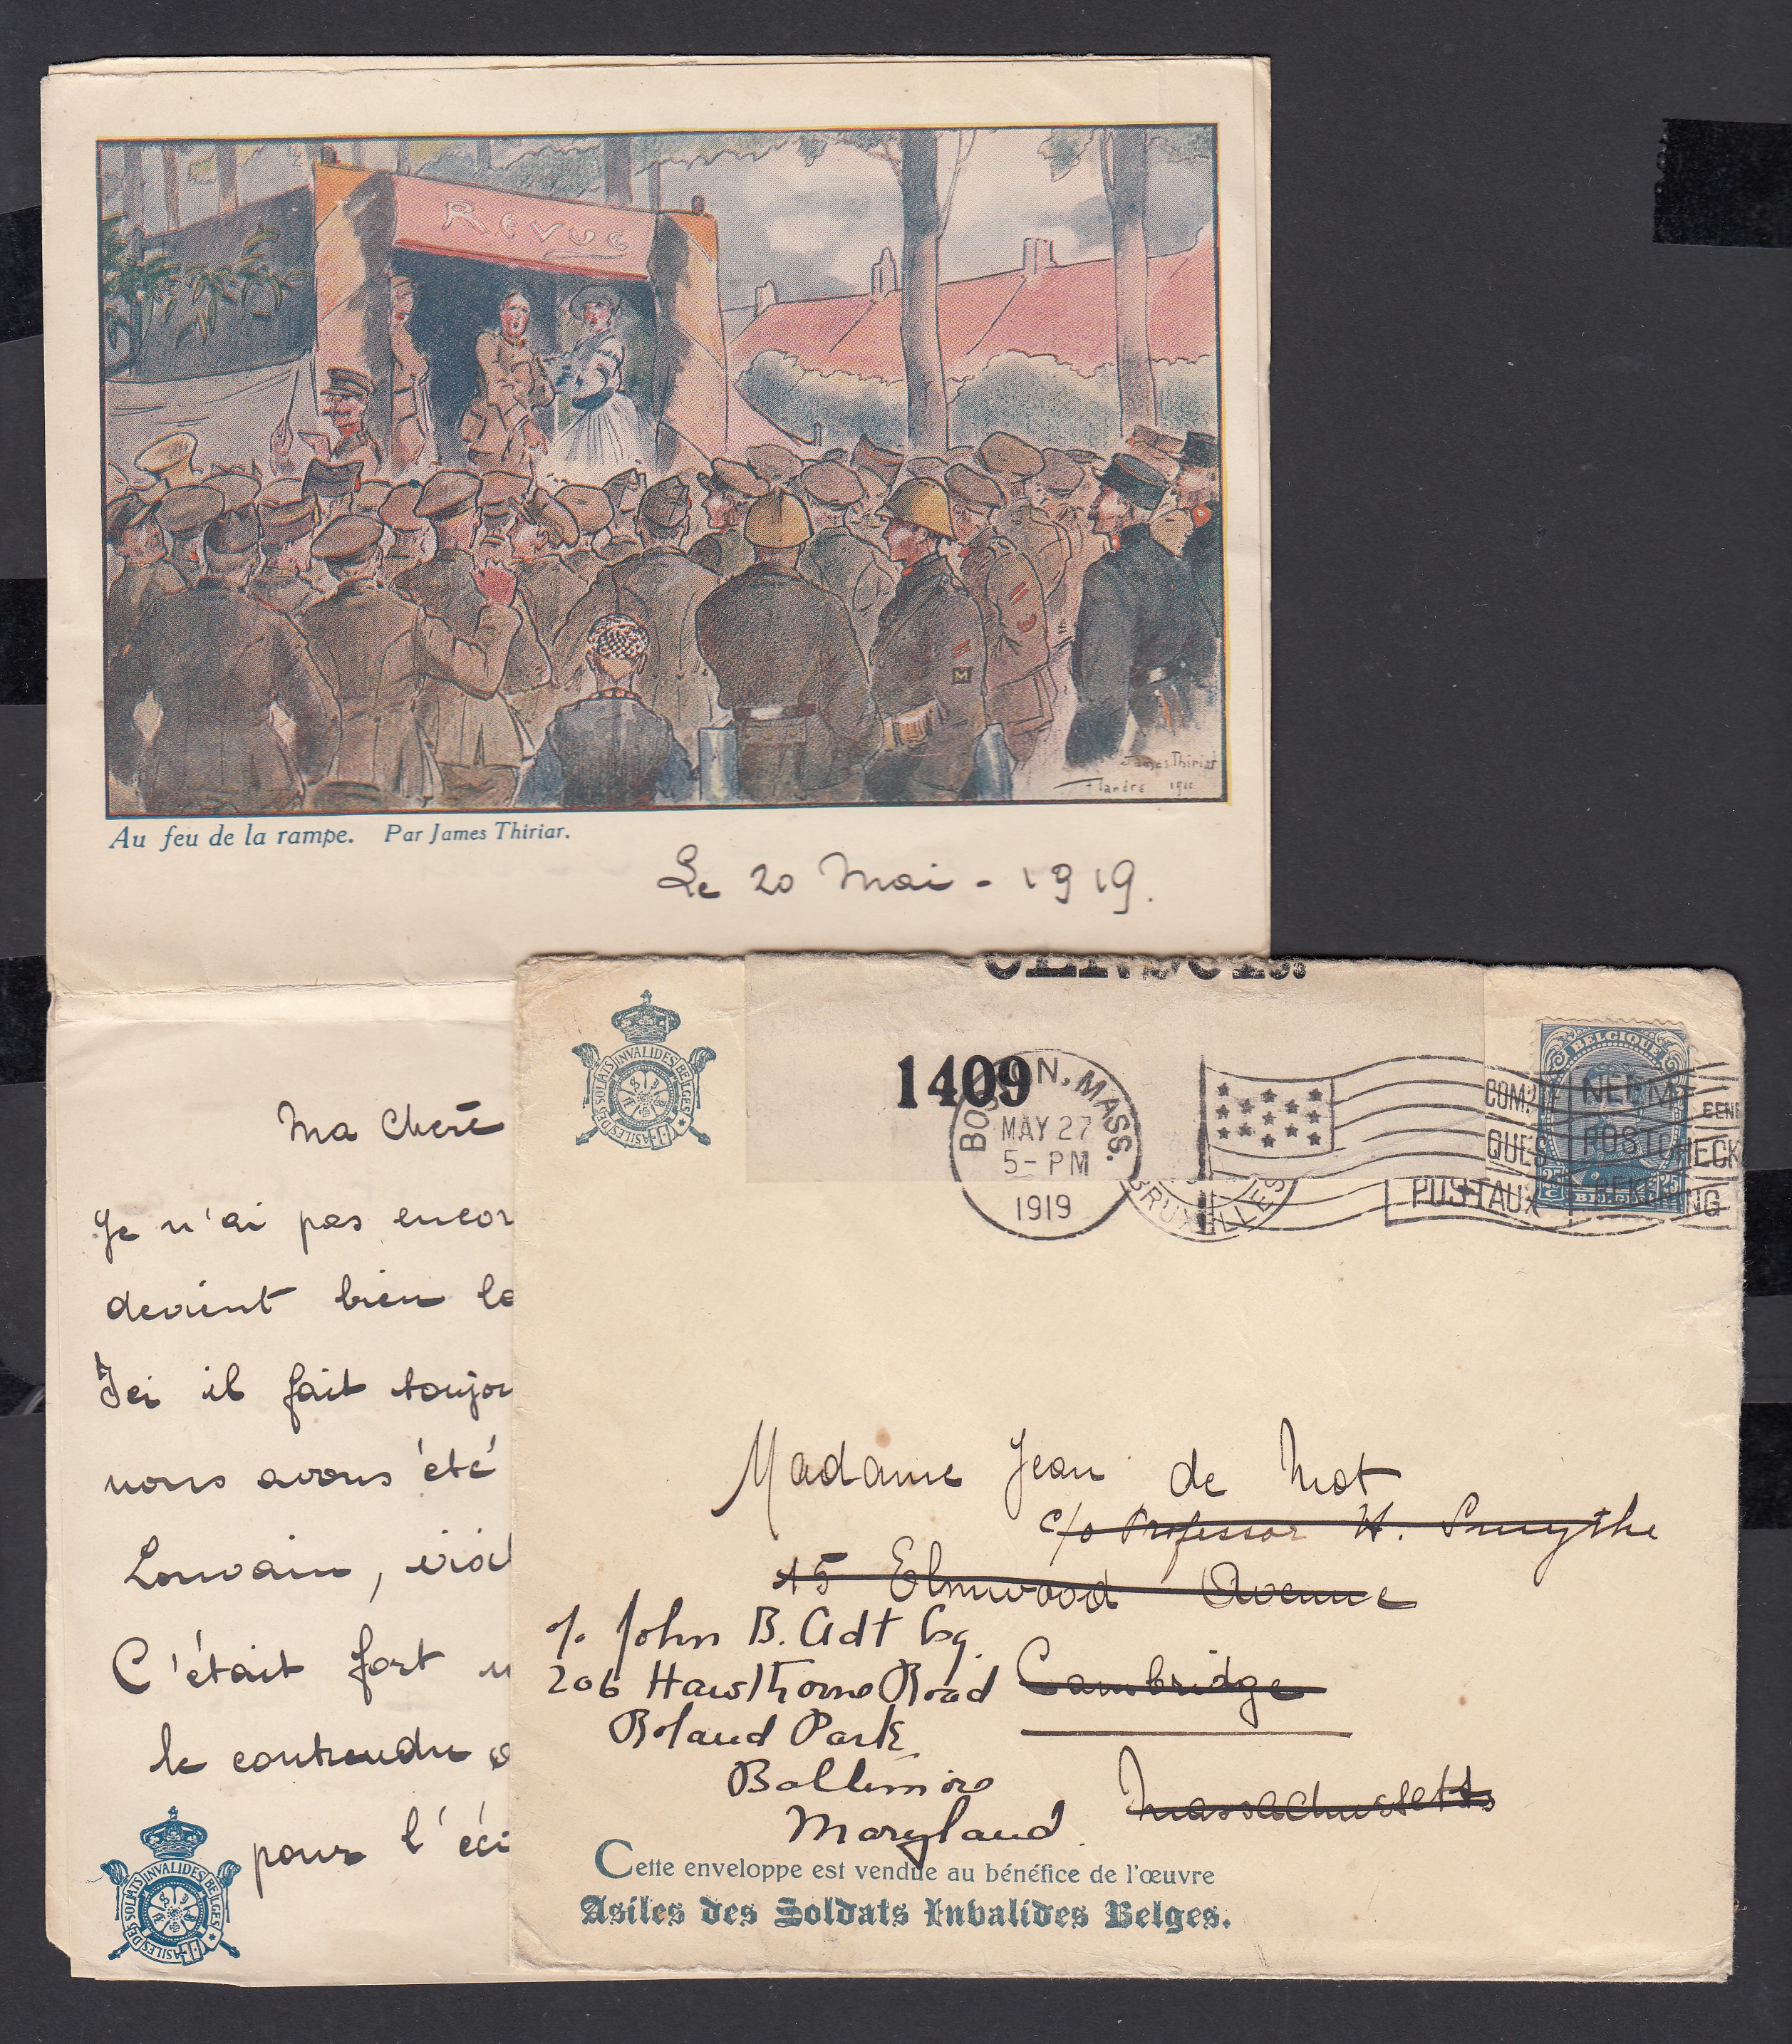 Revue
James Thiriar
Flandre
Au feu de la rampe. Par James Thiriar.
Le 20 Mai - 1919.
Ma Chère
Je n'ai pas
devient bien
Ici il fait
nous avons été
Louvain,
C'était fort
le
pour l'
ASILES DES SOLDATS INVALIDES BELGES
ASILES DES SOLDATS INVALIDES BELGES
1409
BOSTON, MASS.
MAY 27
5-PM
1919
BRUXELLES
POSTAUX
NEEM
POSTCHECK
REKENING
BELGIQUE
25
Madame Jean de Mot
c/o Professor H. Smythe
15 Elmwood Avenue
Cambridge
Massachussetts
c/o John B. Adt Esq.
206 Hawthorne Road
Roland Park
Baltimore
Maryland.
Cette enveloppe est vendue au bénéfice de l'œuvre
Asiles des Soldats Invalides Belges.